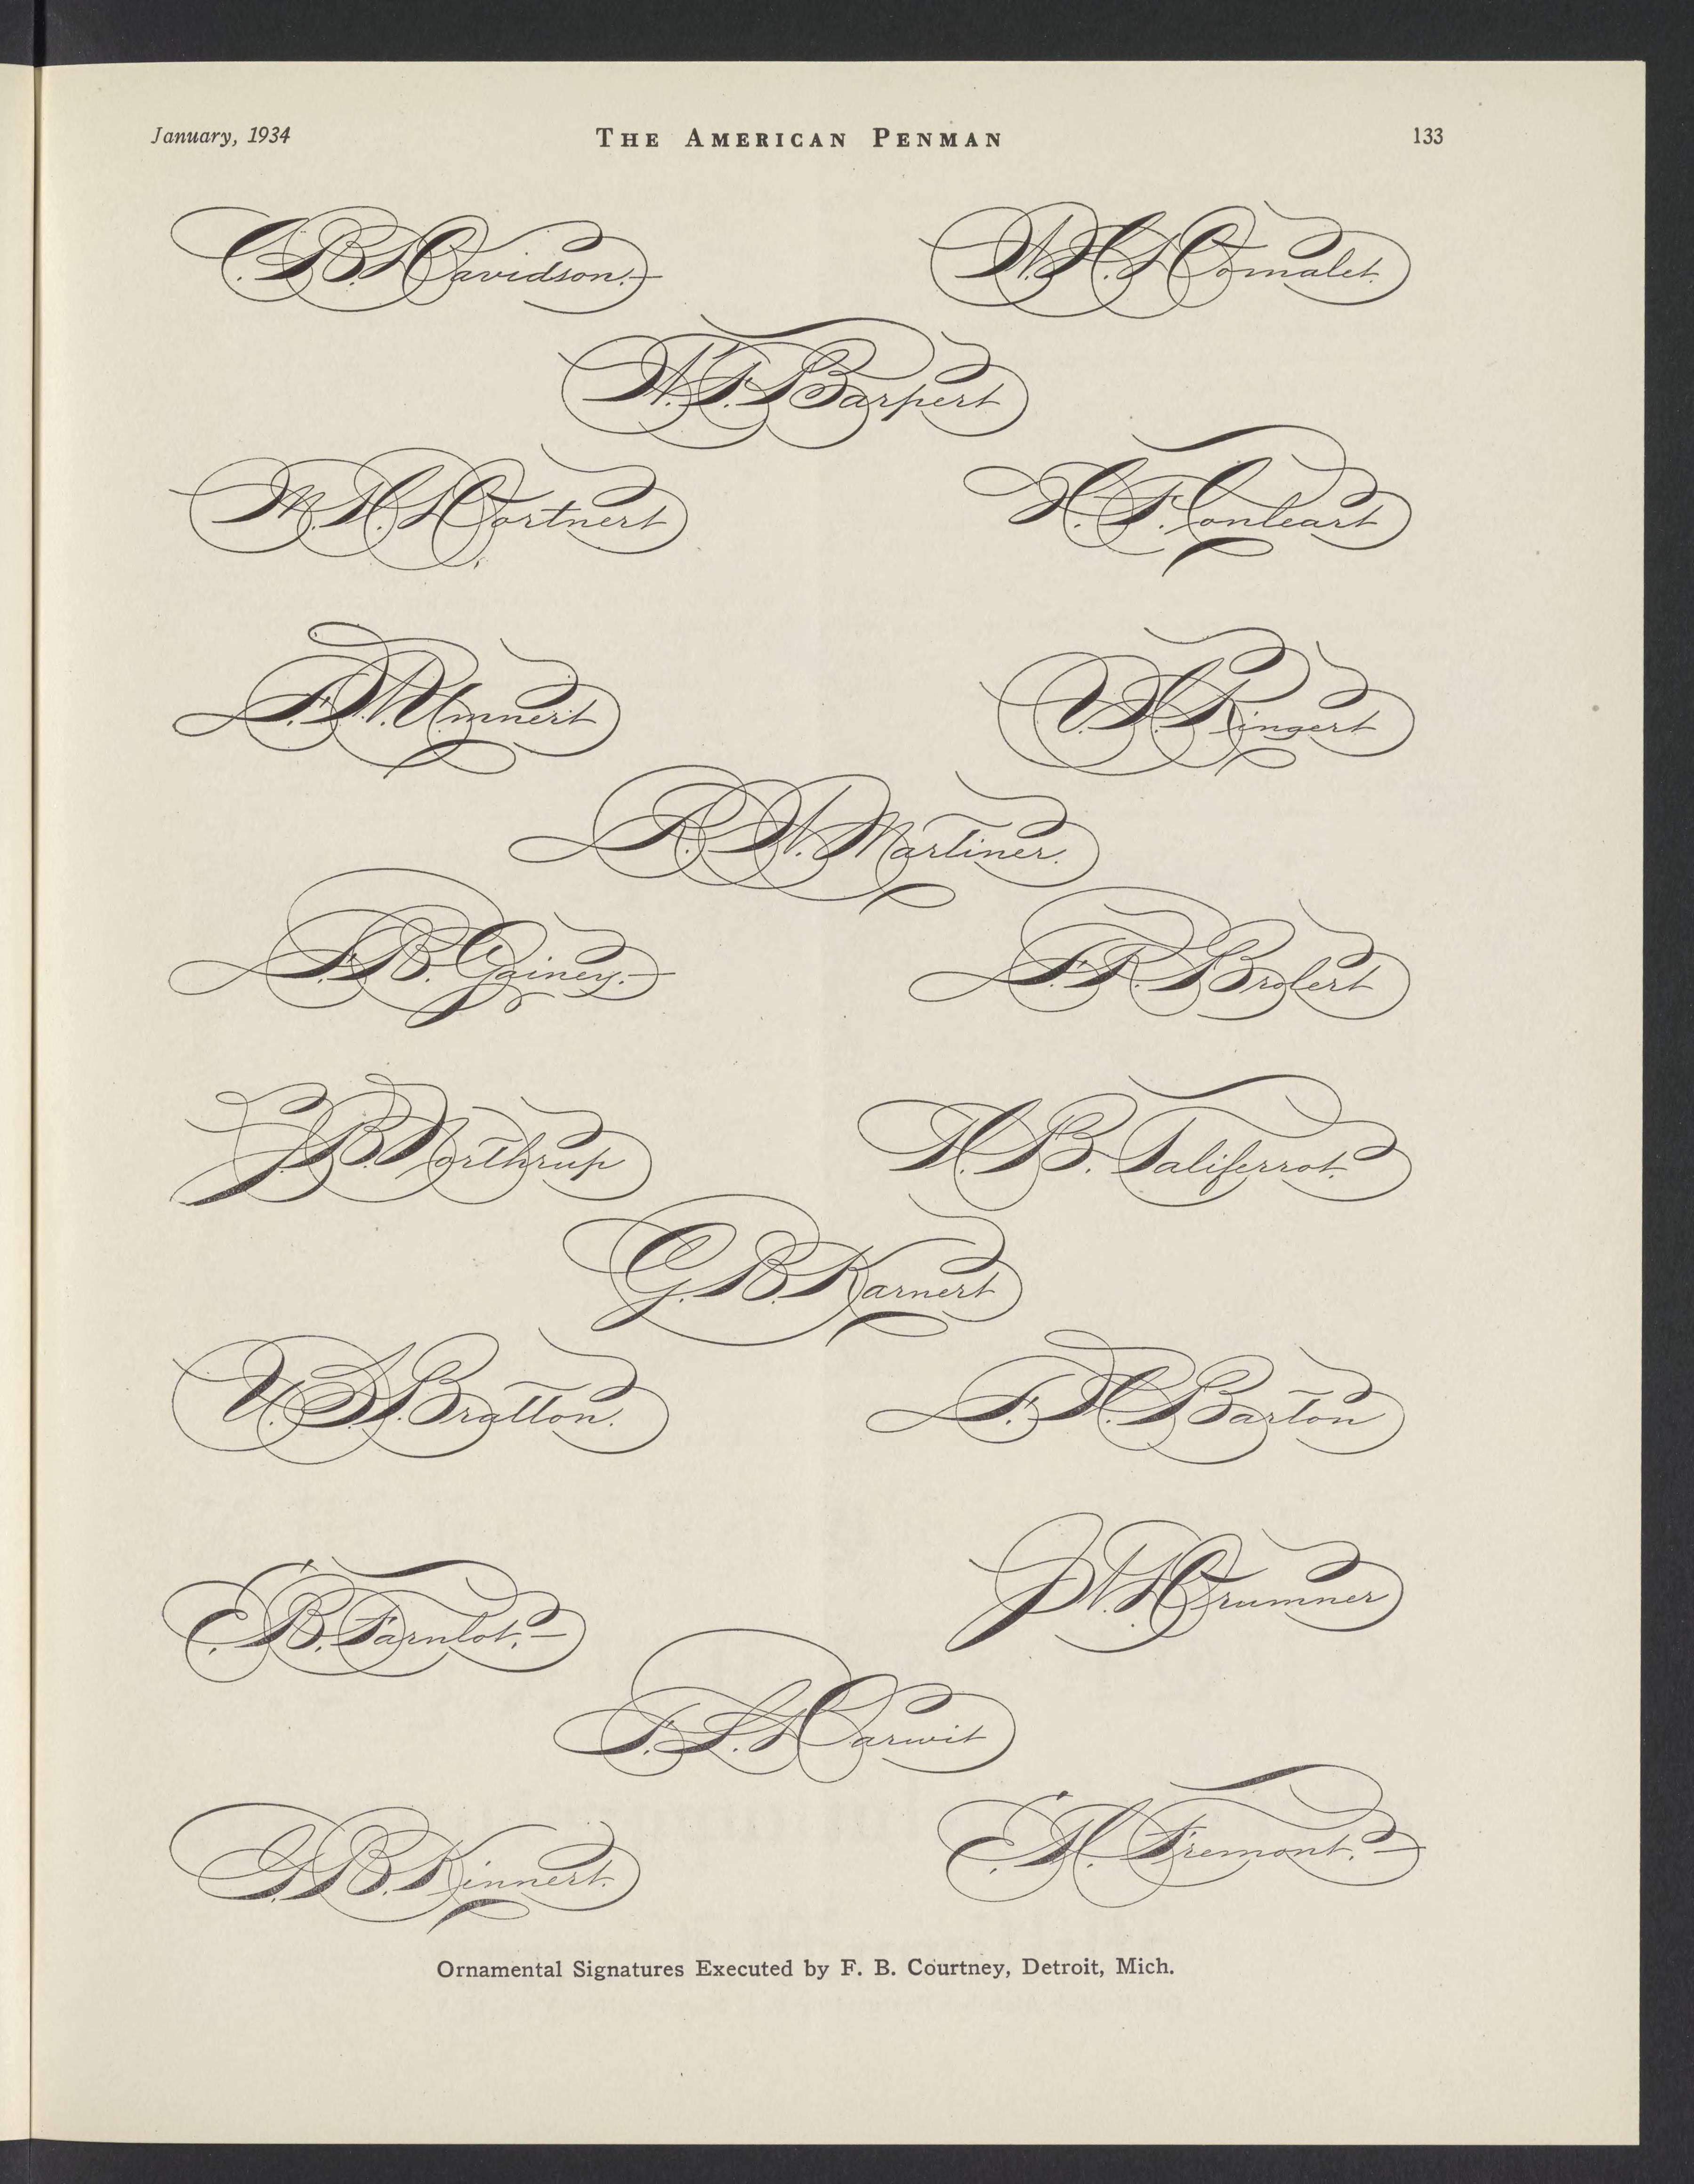 January, 1934 THE AMERICAN PENMAN 133
C. B. Davidson.
W. H. Domalet.
W. F. Barpert
M. H. Dortnert
H. F. Conleart
F. W. Umnert
V. S. Ringert
R. W. Martiner.
F. B. Gainey.
F. R. Brolert
J. B. Northrup
H. B. Taliferrot.
G. B. Karnert
V. S. Bratton.
F. H. Barton
E. B. Farnlot.
J. W. Drumner
T. L. Darwit
G. B. Kinnert.
E. H. Fremont.
Ornamental Signatures Executed by F. B. Courtney, Detroit, Mich.